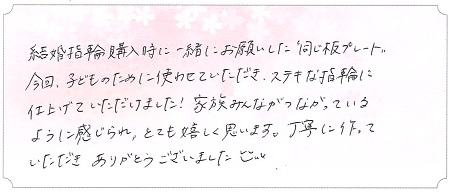 結婚指輪購入時に一緒にお願いした"同じ板プレート"
今回、子どものために使わせていただき、ステキな指輪に
仕上げていただけました！家族みんながつながっている
ように感じられ、とても嬉しく思います。丁寧に作って
いただき ありがとうございました